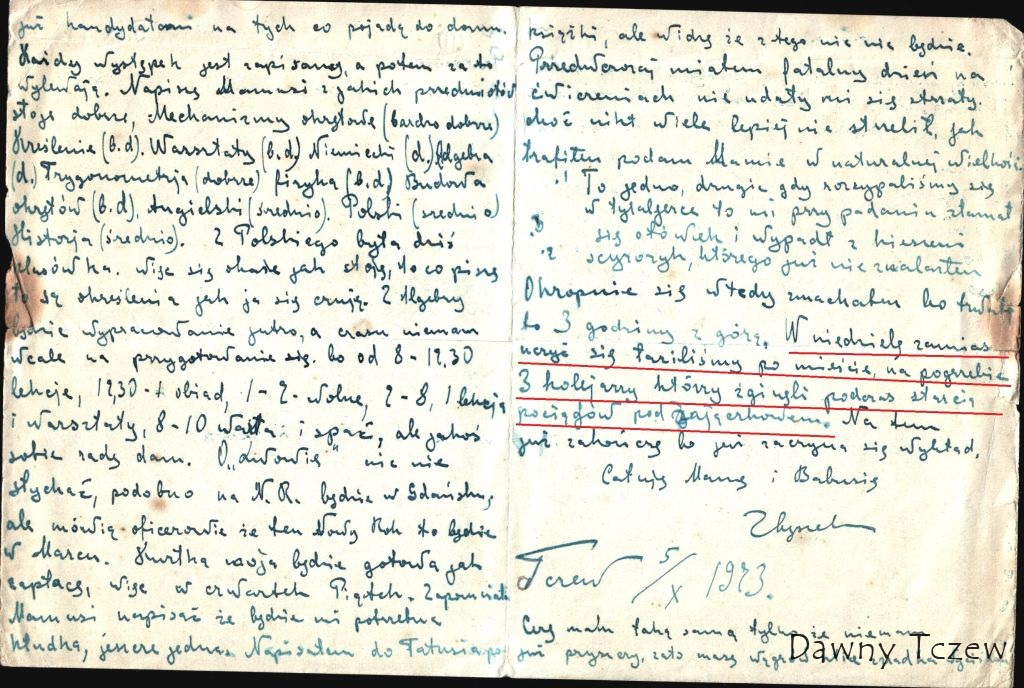 już kandydatami na tych co pojadą do domu.
Każdy występek jest zapisany, a potem za to
wylewają. Napiszę Mamusi z jakich przedmiotów
stoję dobrze, Mechanizmy okrętowe (bardzo dobrze)
Kreślenie (b.d). Warsztaty (b.d.) Niemiecki (d.) Algebra
(d.) Trygonometrja (dobrze) fizyka (b.d) Budowa
okrętów (b.d), Angielski (średnio). Polski (średnio)
Historja (średnio). Z Polskiego była dziś
klasówka. więc się okaże jak stoję, to co piszę
to są określenia jak ja się czuję. Z Algebry
będzie wypracowanie jutro, a czasu niemam
wcale na przygotowanie się. bo od 8 - 12.30
lekcje, 12.30 - 1 obiad, 1 - 2 - wolne, 2 - 8, 1 lekcja
i warsztaty, 8 - 10 i spać, ale jakoś
sobie radę dam. O „Lwowie" nic nie
słychać, podobno na N.R. będzie w Gdańsku,
ale mówią oficerowie że ten Nowy Rok to będzie
w Marcu. Kurtka moja będzie gotowa jak
zapłacę, więc w czwartek Piątek. Zapomniałem
Mamusi napisać że będzie mi potrzebna
kłudka, jeszcze jedna. Napisałem do Tatusia po
książki, ale widzę że z tego nic nie będzie.
Przedwczoraj miałem fatalny dzień na
ćwiczeniach nie udały mi się strzały.
choć nikt wiele lepiej nie strzelił, jak
trafiłem podam Mamie w naturalnej wielkości
To jedno, drugie gdy rozsypaliśmy się
w tyraljerce to mi przy padaniu złamał
się ołówek i wypadł z kieszeni
scyzoryk, którego już nie znalazłem
Okropnie się wtedy zmachałem bo trwało
to 3 godziny z górą. W niedzielę zamiast
uczyć się łaziliśmy po mieście, na pogrzebie
3 kolejarzy którzy zginęli podczas starcia
pociągów pod Zajączkowem. Na tem
już zakończę bo już zaczyna się wykład.
Całuję Mamę i Babusię
Zbyszek
Tczew 5/X 1923.
Czy mała taką samą tylko że niemam
już pryszczy, zato
Dawny Tczew